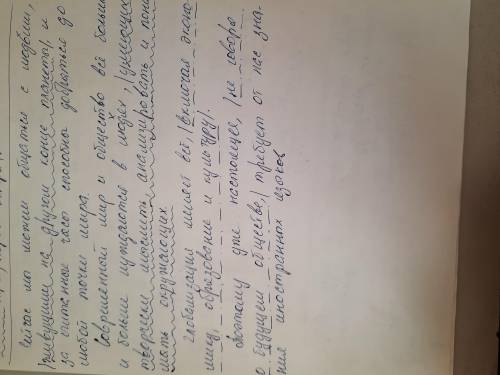 Сейчас мы можем общаться с людьми,
|живущими на другом конце планеты|, и
за считанные часы способны добраться до
любой точки мира.
Современный мир и общество всё больше
и больше нуждаются в людях, |умеющих
творчески мыслить, анализировать и пони-
мать окружающих.
Глобализация меняет всё, |включая эконо-
мику, образование и культуру|.
Поэтому уже настоящее, |не говоря
о будущем обществе,| требует от нас зна-
ния иностранных языков